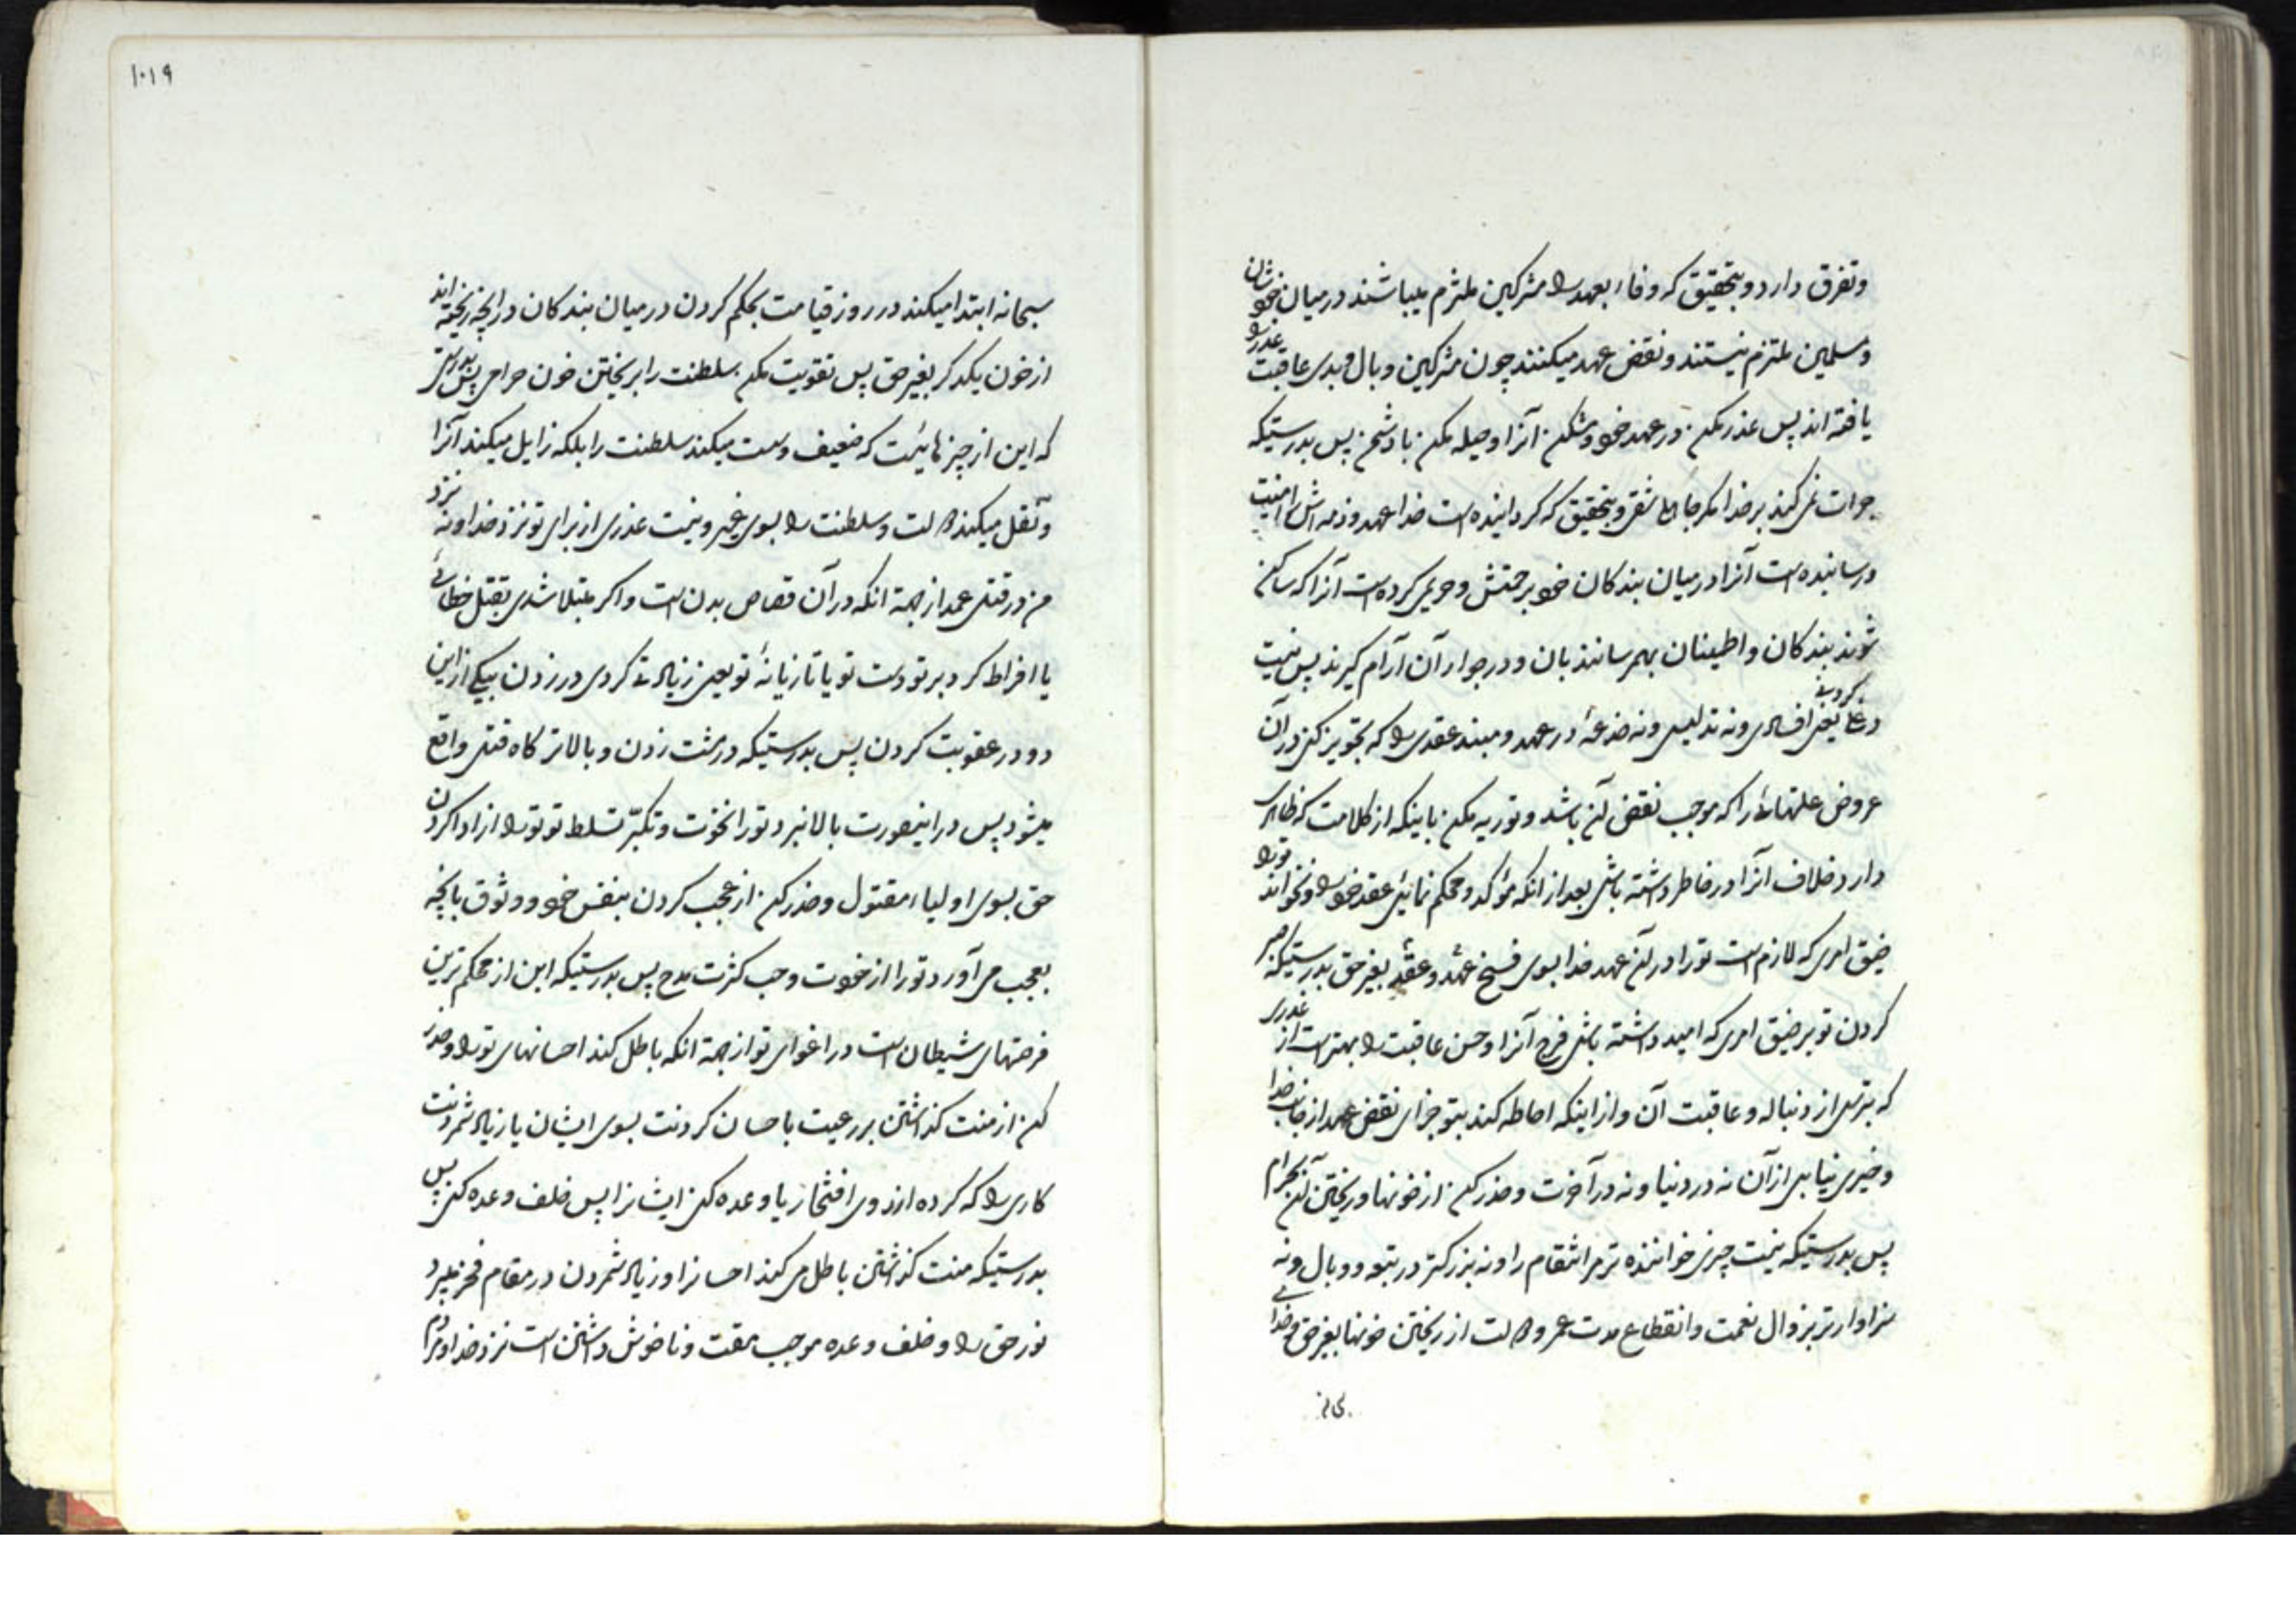 وتفرق دارد و بتحقیق که وفاء بعهد را مشرکین ملتزم میباشند در میان خودشان
و مسلمین ملتزم نیستند و نقض عهد میکنند چون مشرکین وبال و بدی عاقبت غدر را
یافته اند پس غدر مکن در عهد خود و مشکن آنرا و حیله مکن با دشمن پس بدرستیکه
جرات نمی کند بر خدا مکر جاهل شقی و بتحقیق که کردانیده است خدا عهد و ذمه اش را امنیت
و رسانیده است آنرا در میان بندکان خود برحمتش و حریمی کرده است آنرا که ساکن
شوند بندکان و اطمینان بهم رسانند بان و در جوار آن آرام کیرند پس نیست
دغا یعنی افسادی و نه تدلیس و نه خدعهٔ در عهد و مبند عقدی را که تجویز کنی در آن
عروض علتهائی را که موجب نقض آن باشد و توریه مکن باینکه از کلامت که ظاهری
دارد خلاف آنرا در خاطر داشته باشی بعد از انکه مؤکد و محکم نمائی عقد خود را و نخواند تو را
ضیق امری که لازم است تو را در آن عهد خدا بسوی فسخ عهد و عقد بغیر حق بدرستیکه صبر
کردن تو بر ضیق امری که امید داشته باشی فرج آنرا و حسن عاقبت را بهتر است از غدری
که بترسی از دنباله و عاقبت آن و از اینکه احاطه کند بتو جزای نقض عهد از جانب خدا
و خیری نیابی از آن نه در دنیا و نه در آخرت و حذر کن از خونها و ریختن آن بحرام
پس بدرستیکه نیست چیزی خواننده تر مر انتقام را و نه بزرکتر در وبال و نه
سزاوارتر بزوال نعمت و انقطاع مدت عمر و دولت از ریختن خونها بغیر حق خدا
۱۰۱۹
سبحانه ابتدا میکند در روز قیامت بحکم کردن در میان بندکان در انچه ریخته اند
از خون یکدکر بغیر حق پس تقویت مکن سلطنت را بریختن خون حرامی پس بدرستی
که این از چیزهائیست که ضعیف و سست میکند سلطنت را بلکه زایل میکند آنرا
و نقل میکند دولت و سلطنت را بسوی غیر و نیست عذری از برای تو نزد خدا و نه نزد
من در قتل عمد از جهة انکه در آن قصاص بدن است و اکر مبتلا شدی بقتل خطائی
یا افراط کرد بر تو دست تو یا تازیانهٔ تو یعنی زیادتی کردی در زدن بیکی از این
دو در عقوبت کردن پس بدرستیکه در مشت زدن و بالاتر کاه قتل واقع
میشود پس در اینصورت بالا نبرد تو را نخوت و تکبّر تسلط تو تو را از ادا کردن
حق بسوی اولیاء مقتول و حذر کن از عجب کردن بنفس خود و وثوق بانچه
بعجب می آورد تو را از خودت و حب کثرت مدح پس بدرستیکه این از محکم ترین
فرصتهای شیطان است در اغوای تو از جهة انکه باطل کند احسانهای تو را و حذر
کن از منت کذاشتن بر رعیت باحسان کردنت بسوی ایشان یا زیاد شمردنت
کاری را که کرده از روی افتخار یا وعده کنی ایشانرا پس خلف وعده کنی پس
بدرستیکه منت کذاشتن باطل می کند احسانرا و زیاد شمردن در مقام فخر میبرد
نور حق را و خلف وعده موجب مقت و ناخوش داشتن است نزد خدا و مردم